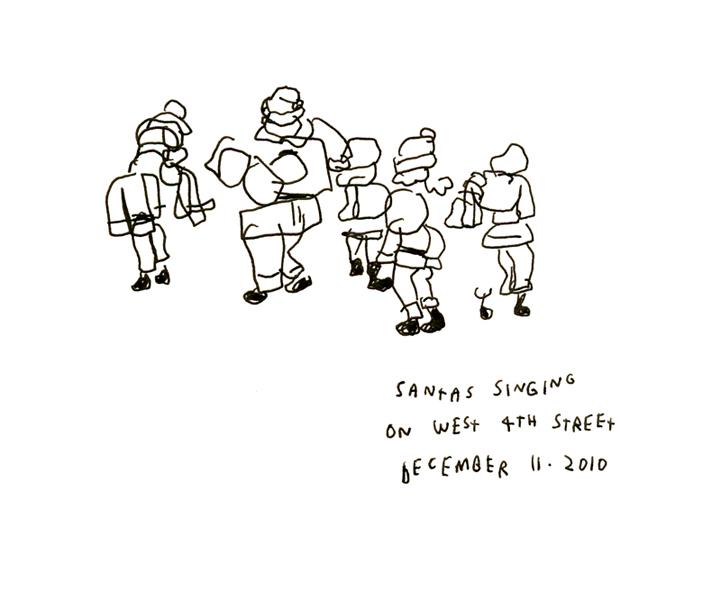 SANTAS SINGING
ON WEST 4TH STREET
DECEMBER 11. 2010